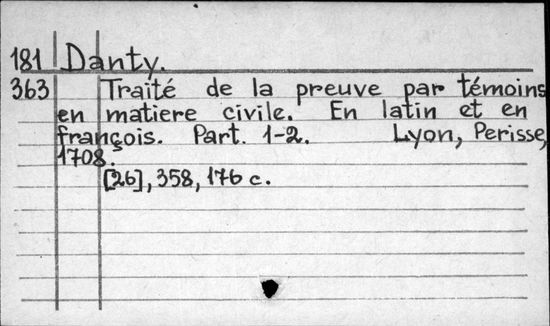 181 Danty.
363 Traité de la preuve par témoins
en matiere civile. En latin et en
françois. Part. 1-2. Lyon, Perisse,
1708.
[26], 358, 176 c.